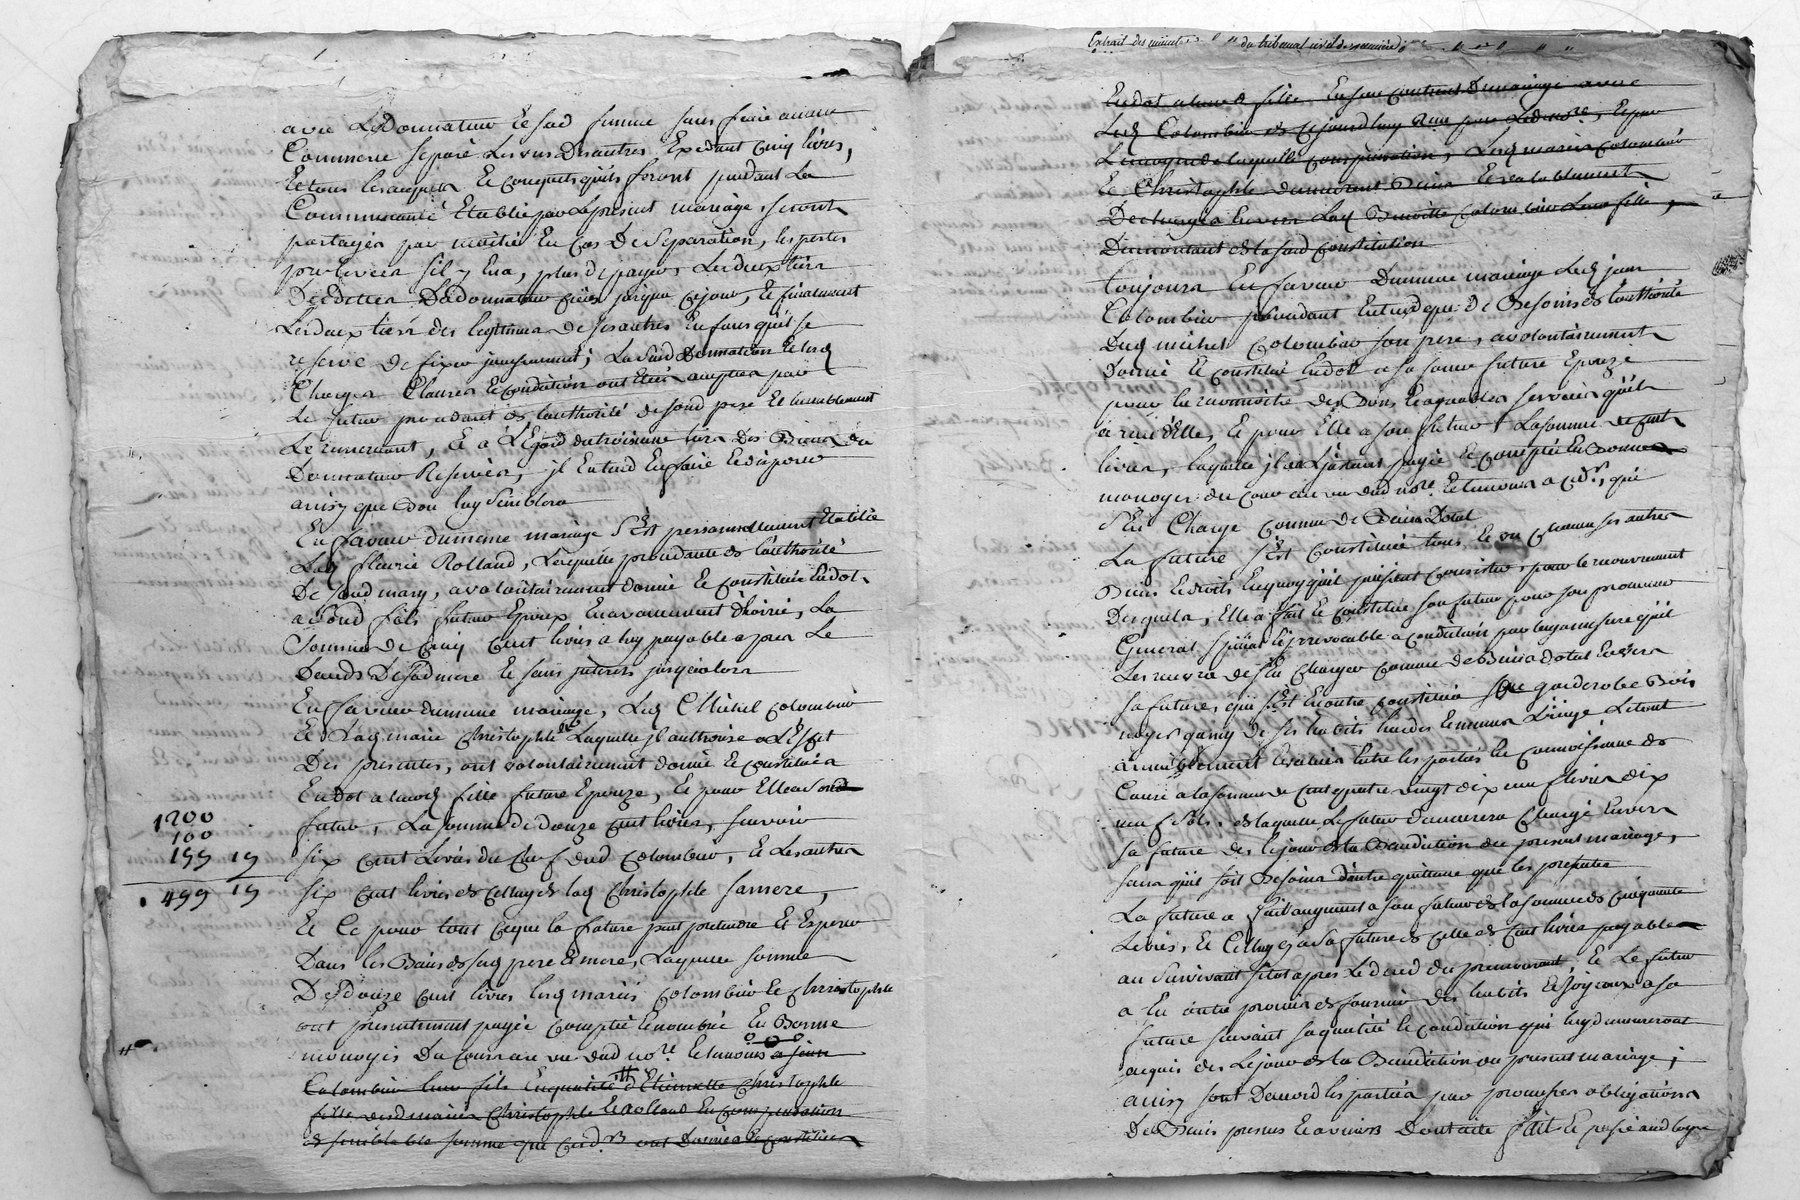 avec Led donnateur Et sad femme sans faire aucun
Commerce separé Les uns Des autres Exedant Cinq livres,
Et tous les acquets Et Conquets quils feront pendant La
Communauté Etablie par Le present mariage seront
partagés par moitié En Cas De separation, les pertes
prelevées sil y En a, plus de payer Les deux tiers
Des dettes Dud donnateur Crées jusqua Ce jour, Et finalement
Les deux tiers des legitimes de ses autres Enfans quil se
reserve de fixer ; La susd Donnation Et lesd
Charges Clauses Et Condition ont Eté acceptées par
Le futur procedant de lauthorité desond pere Et humblement
Le remerciant, Et a L'Egard du troisieme tiers Des Biens du
Donnateur Reservés, jl Entend En faire Et disposer
ainsy que Bon luy semblera
En faveur du meme mariage s'Est personnellement Etablie
Lad fleurie Rolland, Laquelle procedante de l'authorité
De sond mary, a volontairement donné Et Constitué En dot
a sond fils futur Epoux En avancement d'hoirie, La
Somme de Cinq Cent livres a luy payable apres Le
Deceds De sad mere Et sans jnterets jusqualors
En faveur du meme mariage, Led Michel Colombier
Et Lad marie Christophle Laquelle jl authorise a L'Effet
Des presentes, ont volontairement donné Et Constitué
En dot a leurd fille future Epouze, Et pour Elle a sond
futur, La somme de douze Cent livres, scavoir
six Cent Livres du Chef dud Colombier, Et Les autres
six Cent livres de Celluy de lad Christophle sa mere,
Et Ce pour tout Ce que la future peut pretendre Et Esperer
Dans les Biens de sesd pere Et mere, Laquelle somme
De douze Cent livres lesd mariés Colombier Et Christophle
ont presentement payée Comptée Et nombrée En Bonne
monoyes Du Cours au vu dud nore Et temoins a jean
Colombier leur fils En qualité d'Etiennette Christophle
fille desd mariés Christophle Et Rolland En Compensation
de semblable somme que Cesd rs ont Donnée Et Constituée
1200
100
199 19
499 19
Extrait des minutes du tribunal civil de
En dot a leurd fille En son Contrat De mariage avec
Led Colombier de Cejourdhuy Reçu par Led nore, Et par
Le moyen de laquelle Compensation, Lesd mariés Colombier
Et Christophle demeurent Quittes Et valablement
Dechargés Envers Lad Colombier Leur fille,
Du montant de la susd Constitution
Toujours En faveur Du meme mariage Led jean
Colombier procedant Entant que de Besoin de Lauthorité
Dud michel Colombier son pere, a volontairement
Donné Et Constitué En dot a sa soeur future Epouze
pour la recompense des Bons Et agreables services quil
a reçu d'Elle, Et pour Elle a son futur La somme de Cent
livres, laquelle jl a presentement payée Et Comptée En Bonne
monoyes du Cours au vu dud nore Et temoins a Ced rs, qui
s'En Charge Comme de Biens Dotal
La future s'Est Constituée tous Et un Chacun ses autres
Biens Et droits En quoy quil puissent Consister, pour le recouvrement
Desquels, Elle a fait Et Constitué son futur pour son procureur
General special Et jrrevocable a Condition par luy a mesure quil
Les recevra de s'En Charger Comme de Biens dotal Envers
sa future, qui s'Est En outre Constitué son garderobe Bois
noyer garny de ses habits hardes Et menus Linge Letout
amiablement Evalué Entre les parties En Connoissance de
Cause a la somme de Cent quatre vingt dix neuf livres dix
neuf sols, de laquelle Le futur demeurera Chargé Envers
sa future des le jour de la Benediction du present mariage,
sans quil soit Besoin d'autre quittance que les presentes
La future a fait augment a son futur de la somme de Cinquante
Livres, Et Celluy Cy a sa future de Celle de Cent livres payables
au survivant sitot apres Le deceds du premourant, Et Le futur
a En outre promis de fournir des habits Et joyeaux a sa
future suivant sa qualité Et Condition qui luy demeureront
acquis des Le jour de la Benediction du present mariage ;
ainsy sont D'accord les parties par promesses obligations
De Biens presens Et avenirs Dont acte fait Et passé aud lieu